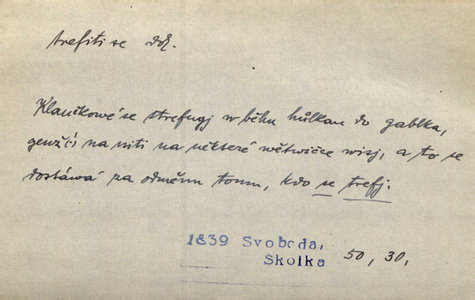 trefiti se dok.
Klaučkowé se strefugj w běhu hůlkau do gablka,
genžći na niti na některé wětwičce wisj, a to se
dostáwá za odměnu tomu, kdo se trefj.
1839 Svoboda,
Školka 50, 30,